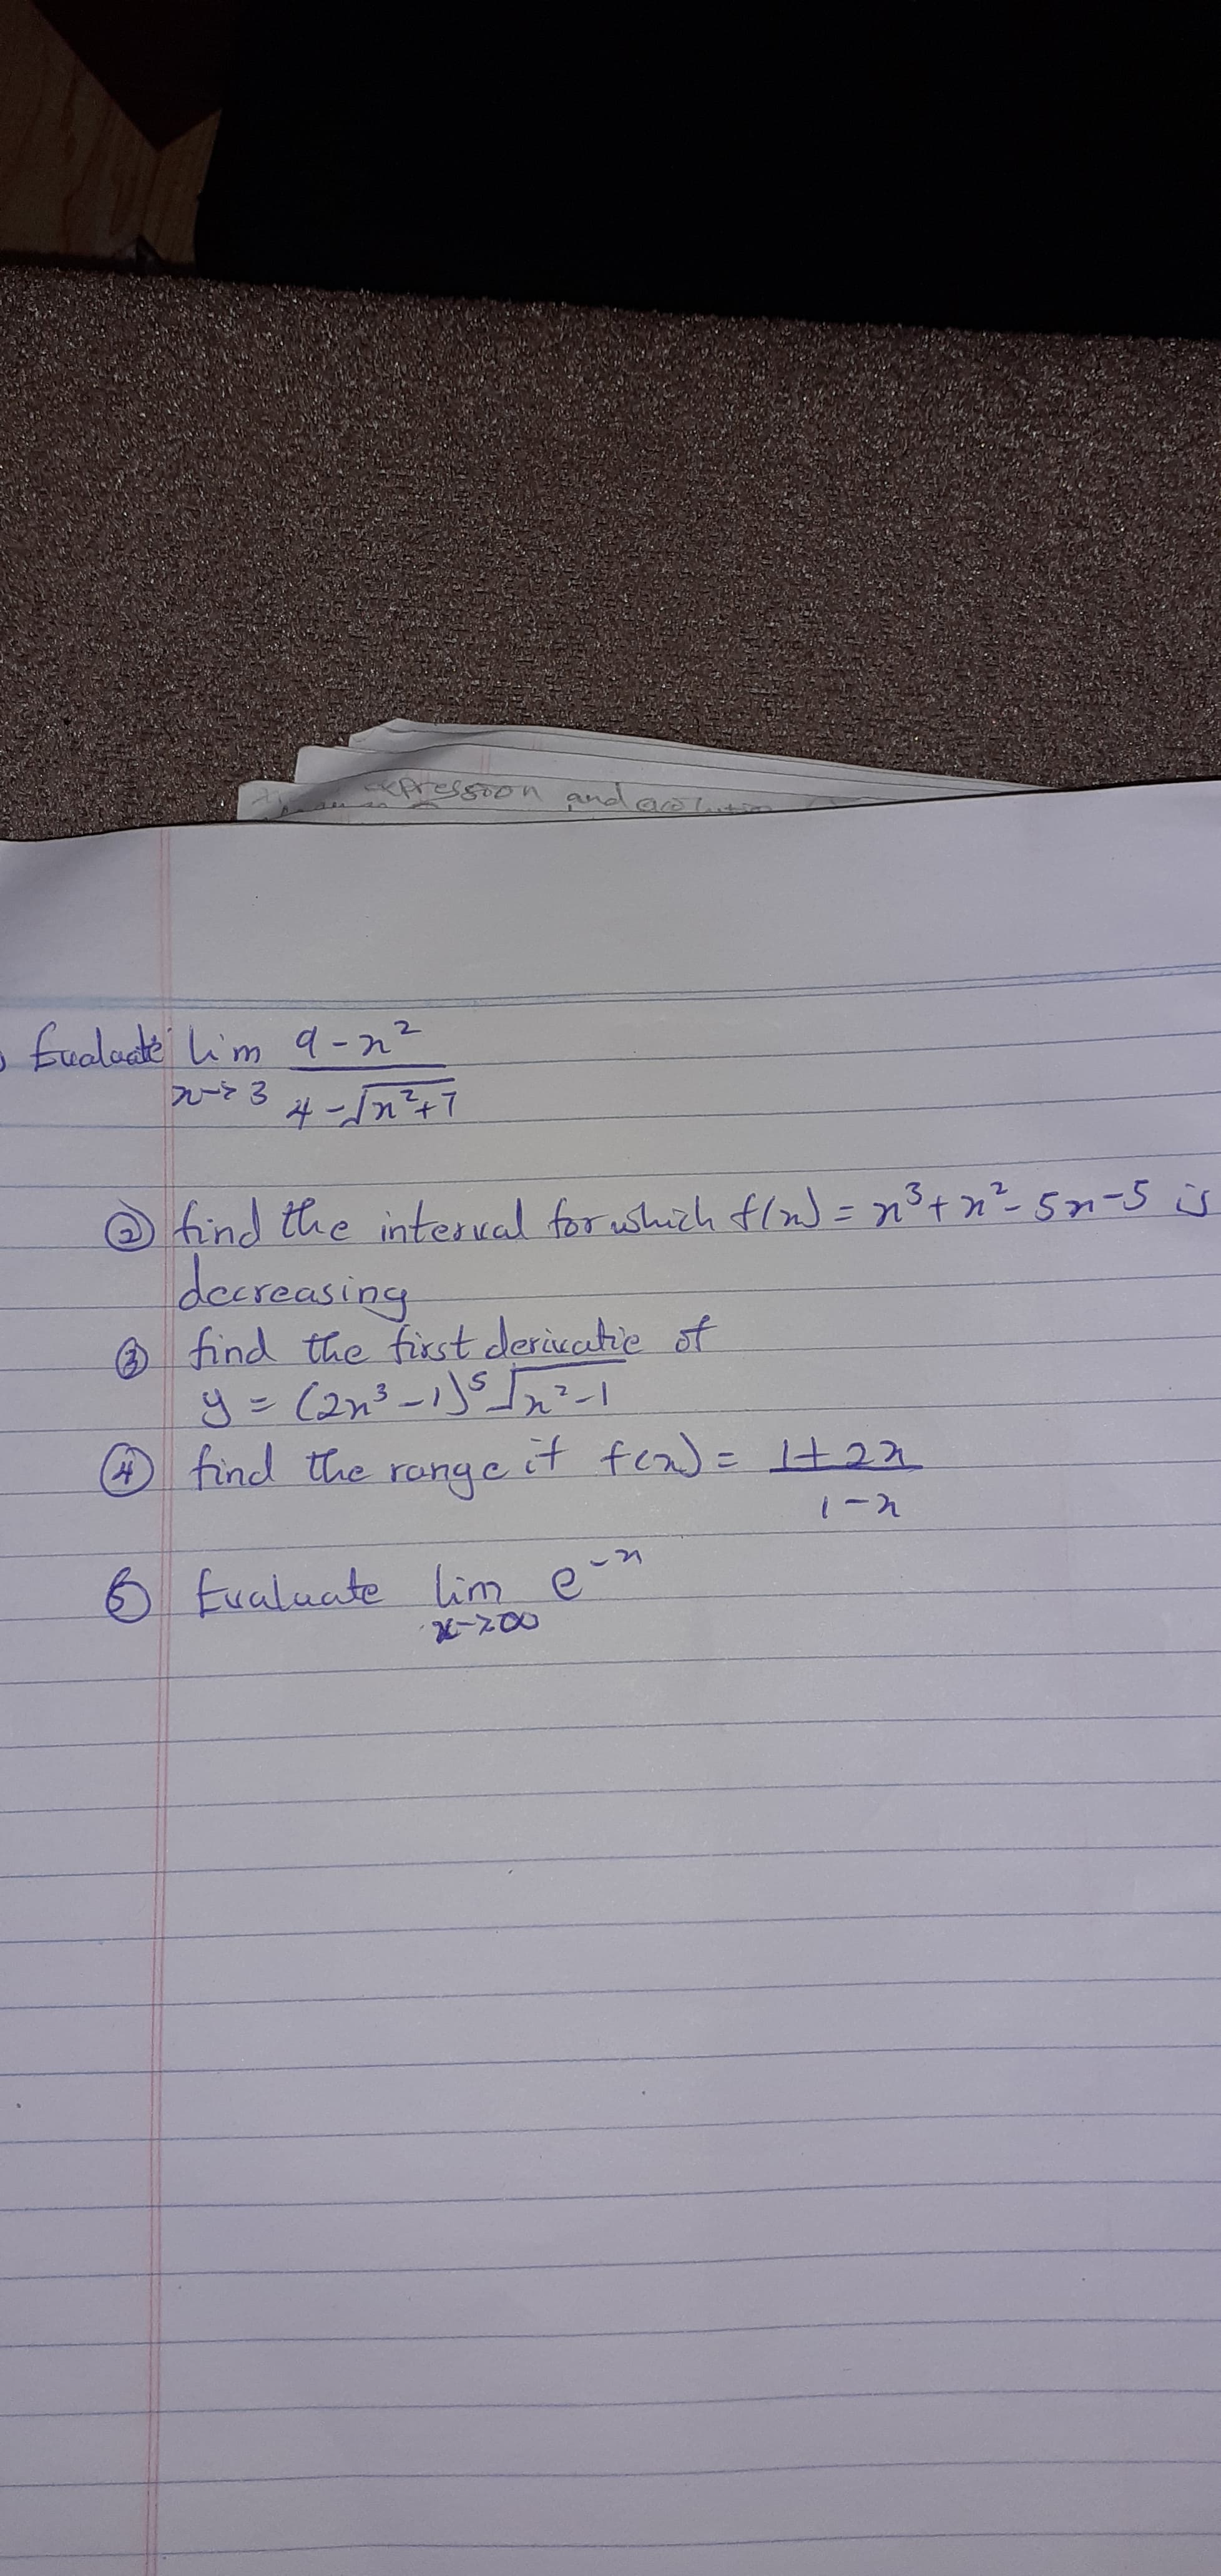 expression and
Evaluate lim 9-x²
x→3 4-√x²+7
② find the interval for which f(x) = x³+x²-5x-5 is
decreasing
③ find the first derivatie of
y = (2x³-1)⁵√x²-1
④ find the range if f(x) = 1+2x
1-x
⑤ Evaluate lim e⁻ˣ
x→∞